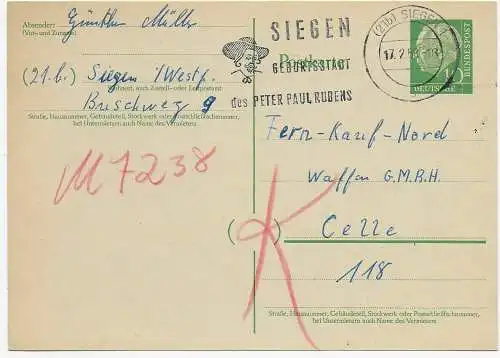 Absender: Günther Müller
(Vor- und Zuname)
(21.b.) Siegen i/Westf.
Wohnort, auch Zustell- oder Leitpostamt
Buschweg 9
Straße, Hausnummer, Gebäudeteil, Stockwerk oder Postschließfachnummer,
bei Untermietern auch Name des Vermieters
M 7238
SIEGEN
GEBURTSSTADT
des PETER PAUL RUBENS
Postkarte
(21b) SIEGEN
17.2.
DEUTSCHE
BUNDESPOST
Fern-Kauf-Nord
Waffen G.M.B.H.
( ) Celle
K
118
Straße, Hausnummer, Gebäudeteil, Stockwerk oder Postschließfachnummer,
bei Untermietern auch Name des Vermieters